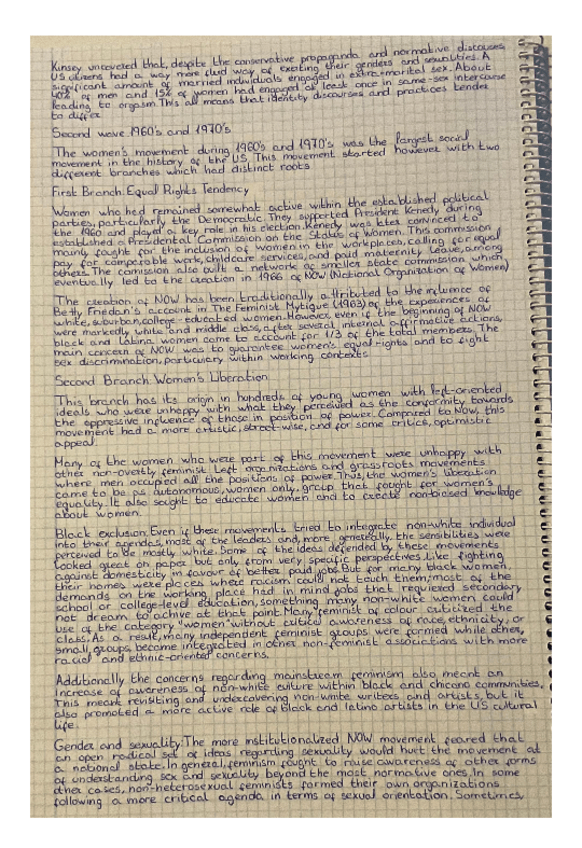 Kinsey uncovered that, despite the conservative propaganda and normative discourses
US citizens had a way more fluid way of exciting their genders and sexualities. A
significant amount of married individuals engaged in extra-marital sex. About
40% of men and 15% of women had engaged at least once in same-sex intercourse
leading to orgasm. This all means that identity discourses and practices tender
to differ
Second wave 1960's and 1970's
The women's movement during 1960's and 1970's was the largest social
movement in the history of the US. This movement started however with two
different branches which had distinct roots
First Branch: Equal Rights Tendency
Women who had remained somewhat active within the established political
parties, particularly the Democratic. They supported President Kenedy during
the 1960 and played a key role in his election. Kenedy was later convinced to
established a Presidential Commission on the Status of Women. This commission
mainly fought for the inclusion of women in the workplaces, calling for equal
pay for comparable work, childcare services, and paid maternity leave, among
others. The comission also built a network of smaller state commission which
eventually led to the creation in 1966 of NOW (National Organization of Women)
The creation of NOW has been traditionally attributed to the influence of
Betty Friedan's account in The Feminist Mytique (1963) of the experiences of
white, suburban, college-educated women. However, even if the beginning of NOW
were markedly white and middle class, after several internal affirmative actions,
black and Latina women came to account for 1/3 of the total members. The
main concern of NOW was to guarantee women's equal rights and to fight
sex discrimination, particulary within working contexts
Second Branch: Women's Liberation
This branch has its origin in hundreds of young women with left-oriented
ideals who were unhappy with what they perceived as the conformity towards
the oppressive influence of those in position of power. Compared to NOW, this
movement had a more artistic, street-wise, and for some critics, optimistic
appeal.
Many of the women who were part of this movement were unhappy with
other non-overtly feminist Left organizations and grassroots movements
where men occupied all the positions of power. Thus, the women's liberation
came to be as autonomous, women only, group that fought for women's
equality. It also sought to educate women and to create non-biased knowledge
about women.
Black exclusion. Even if these movements tried to integrate non-white individual
into their agendas, most of the leaders and, more generally, the sensibilities were
perceived to be mostly white. Some of the ideas defended by these movements
looked great on paper but only from very specific perspectives. Like fighting
against domesticity in favour of better paid job. But for many black women,
their homes were places where racism could not touch them; most of the
demands on the working place had in mind jobs that required secondary
school or college-level education, something many non-white women could
not dream to achive at that point. Many feminist of colour critized the
use of the category "women" without critical awareness of race, ethnicity, or
class. As a result, many independent feminist groups were formed while other,
small, groups became integrated in other non-feminist associations with more
racial and ethnic-oriented concerns.
Additionally the concerns regarding mainstream feminism also meant an
increase of awareness of non-white culture within black and chicano communities,
This meant revisiting and undercovering non-white writers and artists, but it
also promoted a more active role of Black and latino artists in the US cultural
life.
Gender and sexuality. The more institutionalized NOW movement feared that
an open radical set of ideas regarding sexuality would hurt the movement at
a national state. In general, feminism fought to raise awareness of other forms
of understanding sex and sexuality beyond the most normative ones. In some
other cases, non-heterosexual feminists formed their own organizations
following a more critical agenda in terms of sexual orientation. Sometimes,